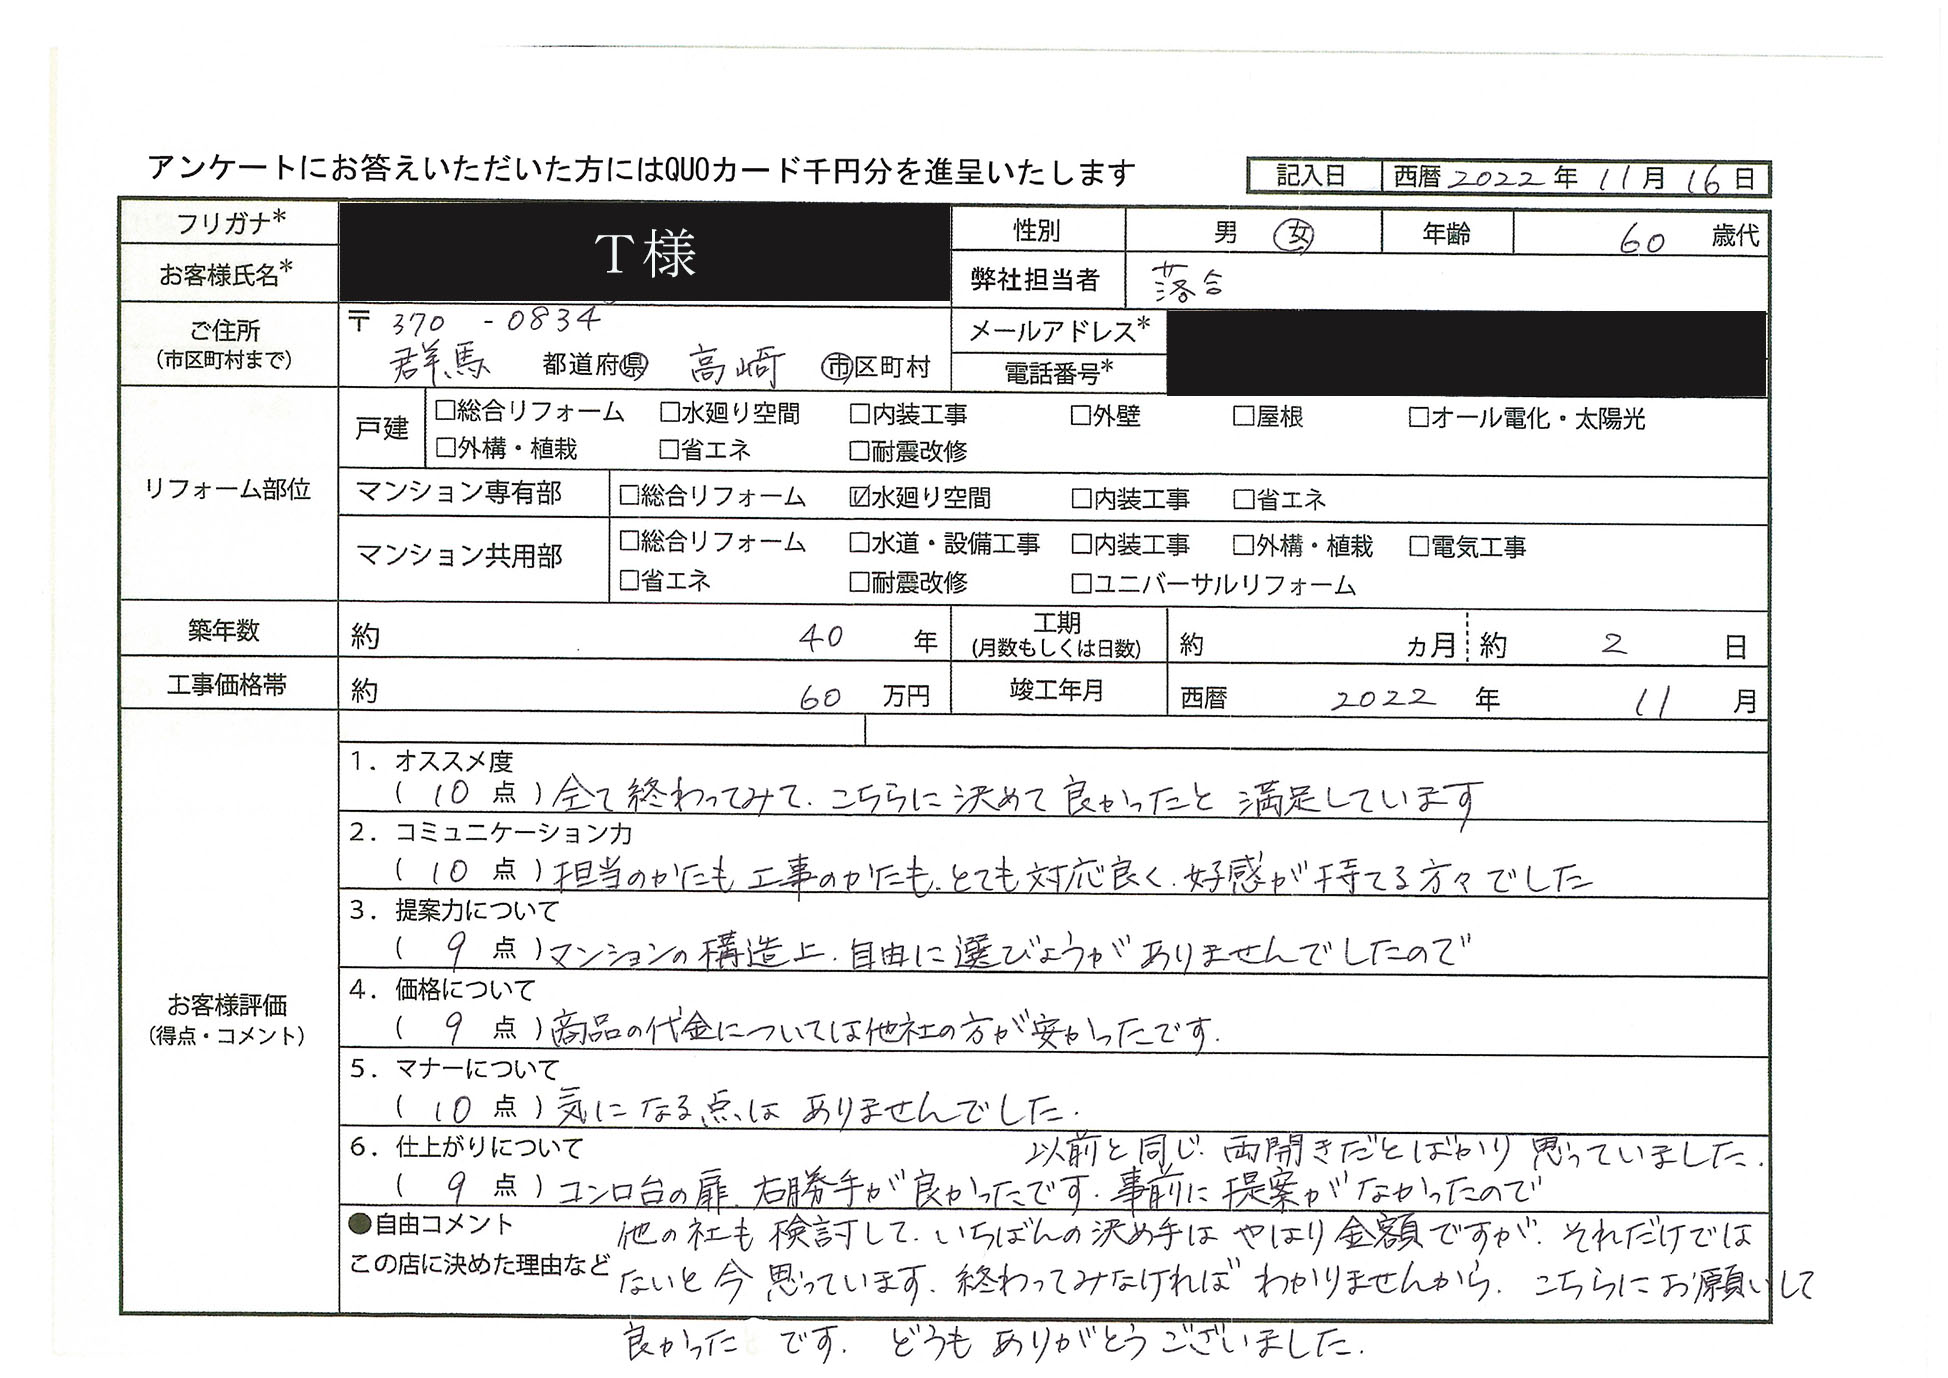 アンケートにお答えいただいた方にはQUOカード千円分を進呈いたします
記入日 西暦 2022 年 11 月 16 日
フリガナ* T様 性別 男 女 年齢 60 歳代
お客様氏名* 弊社担当者 落合
ご住所 (市区町村まで) 〒 370 - 0834 メールアドレス*
群馬 都道府県 高崎 市区町村 電話番号*
リフォーム部位
戸建 □総合リフォーム □水廻り空間 □内装工事 □外壁 □屋根 □オール電化・太陽光
□外構・植栽 □省エネ □耐震改修
マンション専有部 □総合リフォーム ☑水廻り空間 □内装工事 □省エネ
マンション共用部 □総合リフォーム □水道・設備工事 □内装工事 □外構・植栽 □電気工事
□省エネ □耐震改修 □ユニバーサルリフォーム
築年数 約 40 年 工期 (月数もしくは日数) 約 ヵ月 約 2 日
工事価格帯 約 60 万円 竣工年月 西暦 2022 年 11 月
お客様評価
(得点・コメント)
1. オススメ度
( 10 点 ) 全て終わってみて、こちらに決めて良かったと満足しています
2. コミュニケーション力
( 10 点 ) 担当のかたも工事のかたも、とても対応良く、好感が持てる方々でした
3. 提案力について
( 9 点 ) マンションの構造上、自由に選びようがありませんでしたので
4. 価格について
( 9 点 ) 商品の代金については他社の方が安かったです.
5. マナーについて
( 10 点 ) 気になる点はありませんでした.
6. 仕上がりについて 以前と同じ両開きだとばかり思っていました.
( 9 点 ) コンロ台の扉、右勝手が良かったです. 事前に提案がなかったので
●自由コメント 他の社も検討して、いちばんの決め手はやはり金額ですが、それだけでは
この店に決めた理由など ないと今思っています. 終わってみなければわかりませんから、こちらにお願いして
良かったです. どうもありがとうございました.